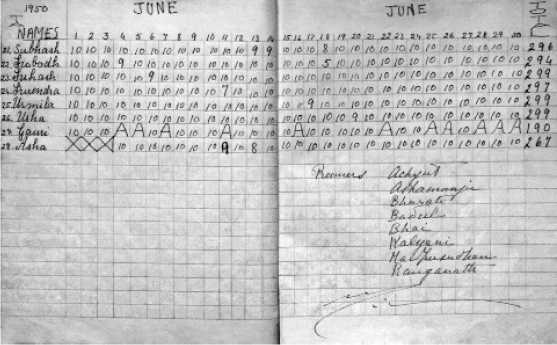 1950 JUNE JUNE TOTAL
NAMES 1 2 3 4 5 6 7 8 9 10 11 12 13 14 15 16 17 18 19 20 21 22 23 24 25 26 27 28 29 30
21. Subhash 10 10 10 10 10 10 10 10 10 10 10 10 9 9 10 10 10 8 10 10 10 10 10 10 10 10 10 10 10 10 296
22. Subodh 10 10 10 9 10 10 10 10 10 10 10 10 10 10 10 10 10 5 10 10 10 10 10 10 10 10 10 10 10 10 294
23. Suhash 10 10 10 10 10 9 10 10 10 10 10 10 10 10 10 10 10 10 10 10 10 10 10 10 10 10 10 10 10 10 299
24. Surendra 10 10 10 10 10 10 10 10 10 10 7 10 10 10 10 10 10 10 10 10 10 10 10 10 10 10 10 10 10 10 297
25. Urmila 10 10 10 10 10 10 10 10 10 10 10 10 10 10 10 10 9 10 10 10 10 10 10 10 10 10 10 10 10 10 299
26. Usha 10 10 10 10 10 10 10 10 10 10 10 10 10 10 10 10 10 10 10 9 10 10 10 10 10 10 10 10 10 10 299
27. Gauri 10 10 10 A A 10 A 10 10 10 A 10 10 10 10 A 10 10 10 10 10 A 10 10 A A 10 A A A 190
28. Asha X X X 10 10 10 10 10 10 10 9 10 8 10 10 10 10 10 10 10 10 10 10 10 10 10 10 10 10 10 267
Achyut
Bharati
Bhai
Kalyani
Ranganath